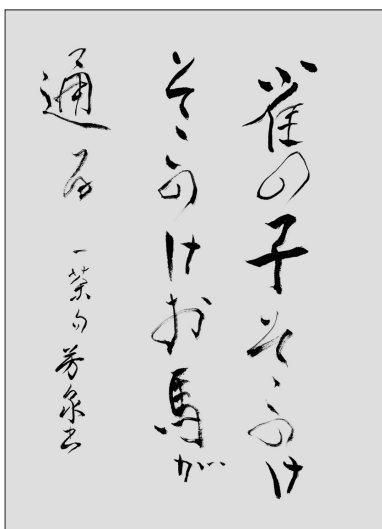 雀の子そこのけ
そこのけお馬が
通る
一茶句 芳泉書